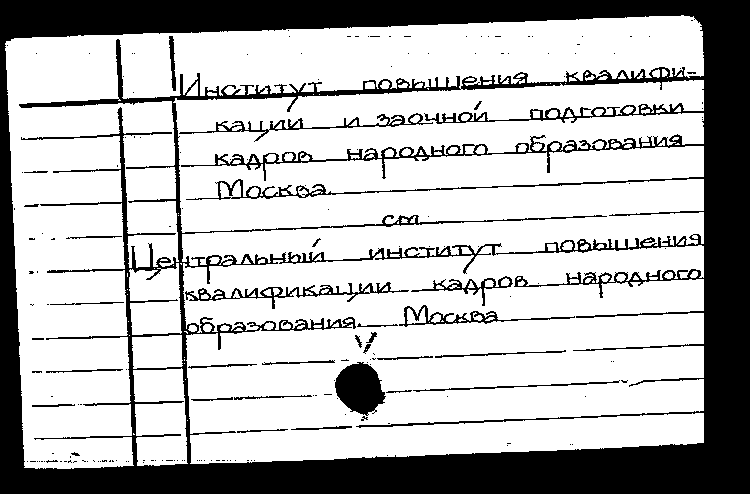 Институт повышения квалифи-
кации и заочной подготовки
кадров народного образования
Москва.
см
Центральный институт повышения
квалификации кадров народного
образования. Москва
V